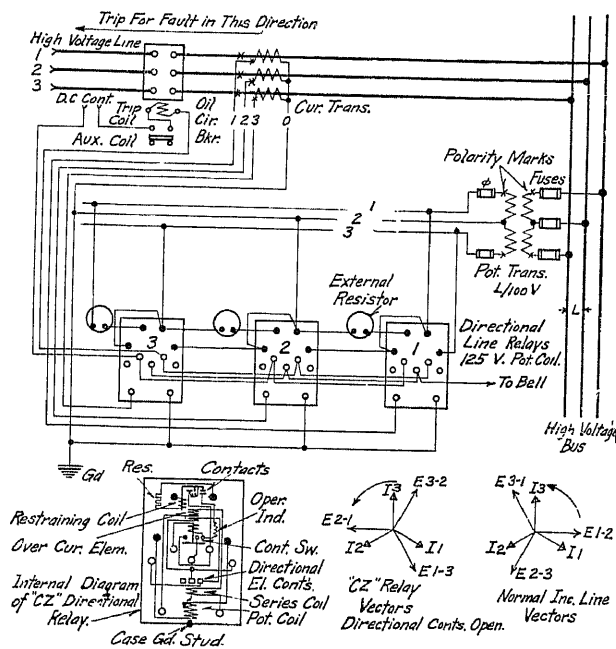 Trip For Fault in This Direction
High Voltage Line
1
2
3
D.C Cont.
Trip
Coil
Aux. Coil
Oil
Cir.
Bkr.
1 2 3 0
Cur. Trans.
Polarity Marks
Fuses
ϕ
1
2
3
Pot. Trans.
L/100 V
L
External
Resistor
3
2
1
Directional
Line Relays
125 V. Pot. Coil.
To Bell
High Voltage
Bus
Gd
Res.
Contacts
Restraining Coil
Over Cur. Elem.
Oper.
Ind.
Cont. Sw.
Directional
El. Conts.
Series Coil
Pot. Coil
Internal Diagram
of "CZ" Directional
Relay.
Case Gd. Stud.
E3-2
I3
E2-1
I2
I1
E1-3
"CZ" Relay
Vectors
Directional Conts. Open.
E3-1
I3
E1-2
I2
I1
E2-3
Normal Inc. Line
Vectors